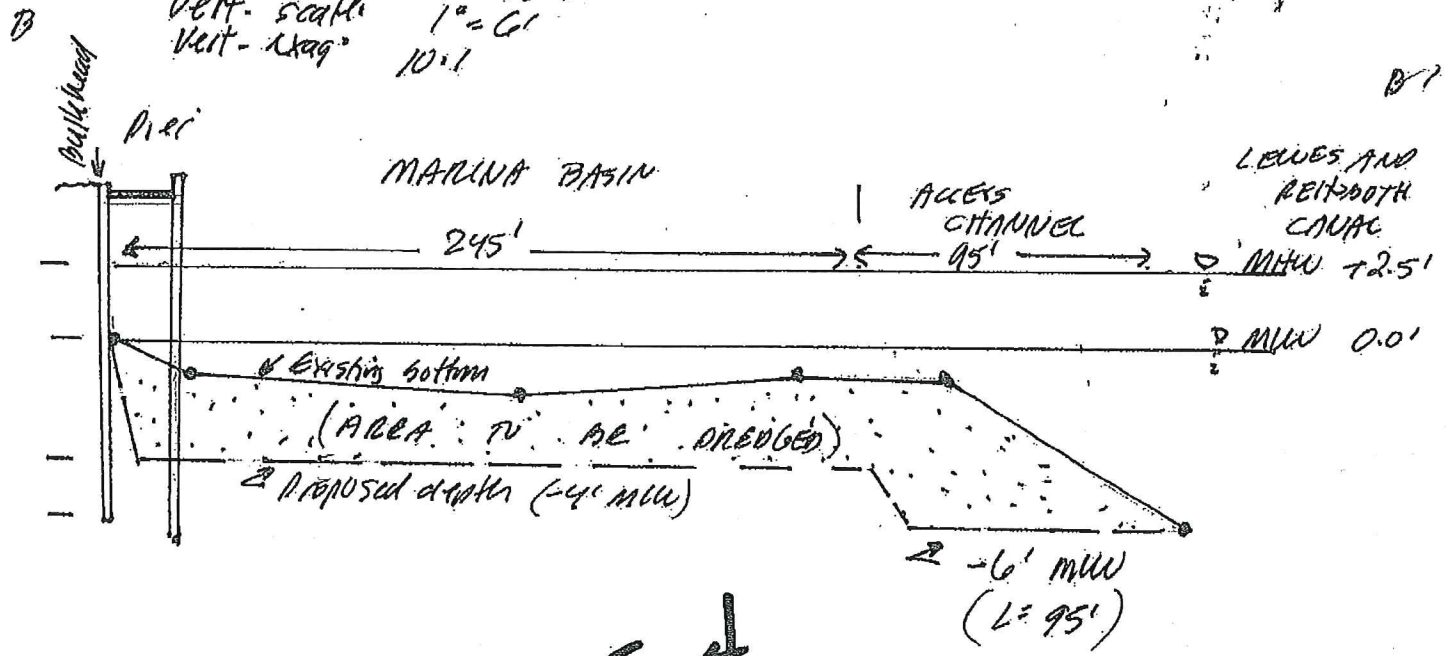 B
Vert. scale 1" = 6'
Vert. exag. 10:1
B'
Bulkhead
Pier
MARINA BASIN
ACCESS
CHANNEL
LEWES AND
REHOBOTH
CANAL
245'
95'
MHW +2.5'
MLW 0.0'
Existing bottom
(AREA TO BE DREDGED)
Proposed depth (-4' MLW)
-6' MLW
(L= 95')